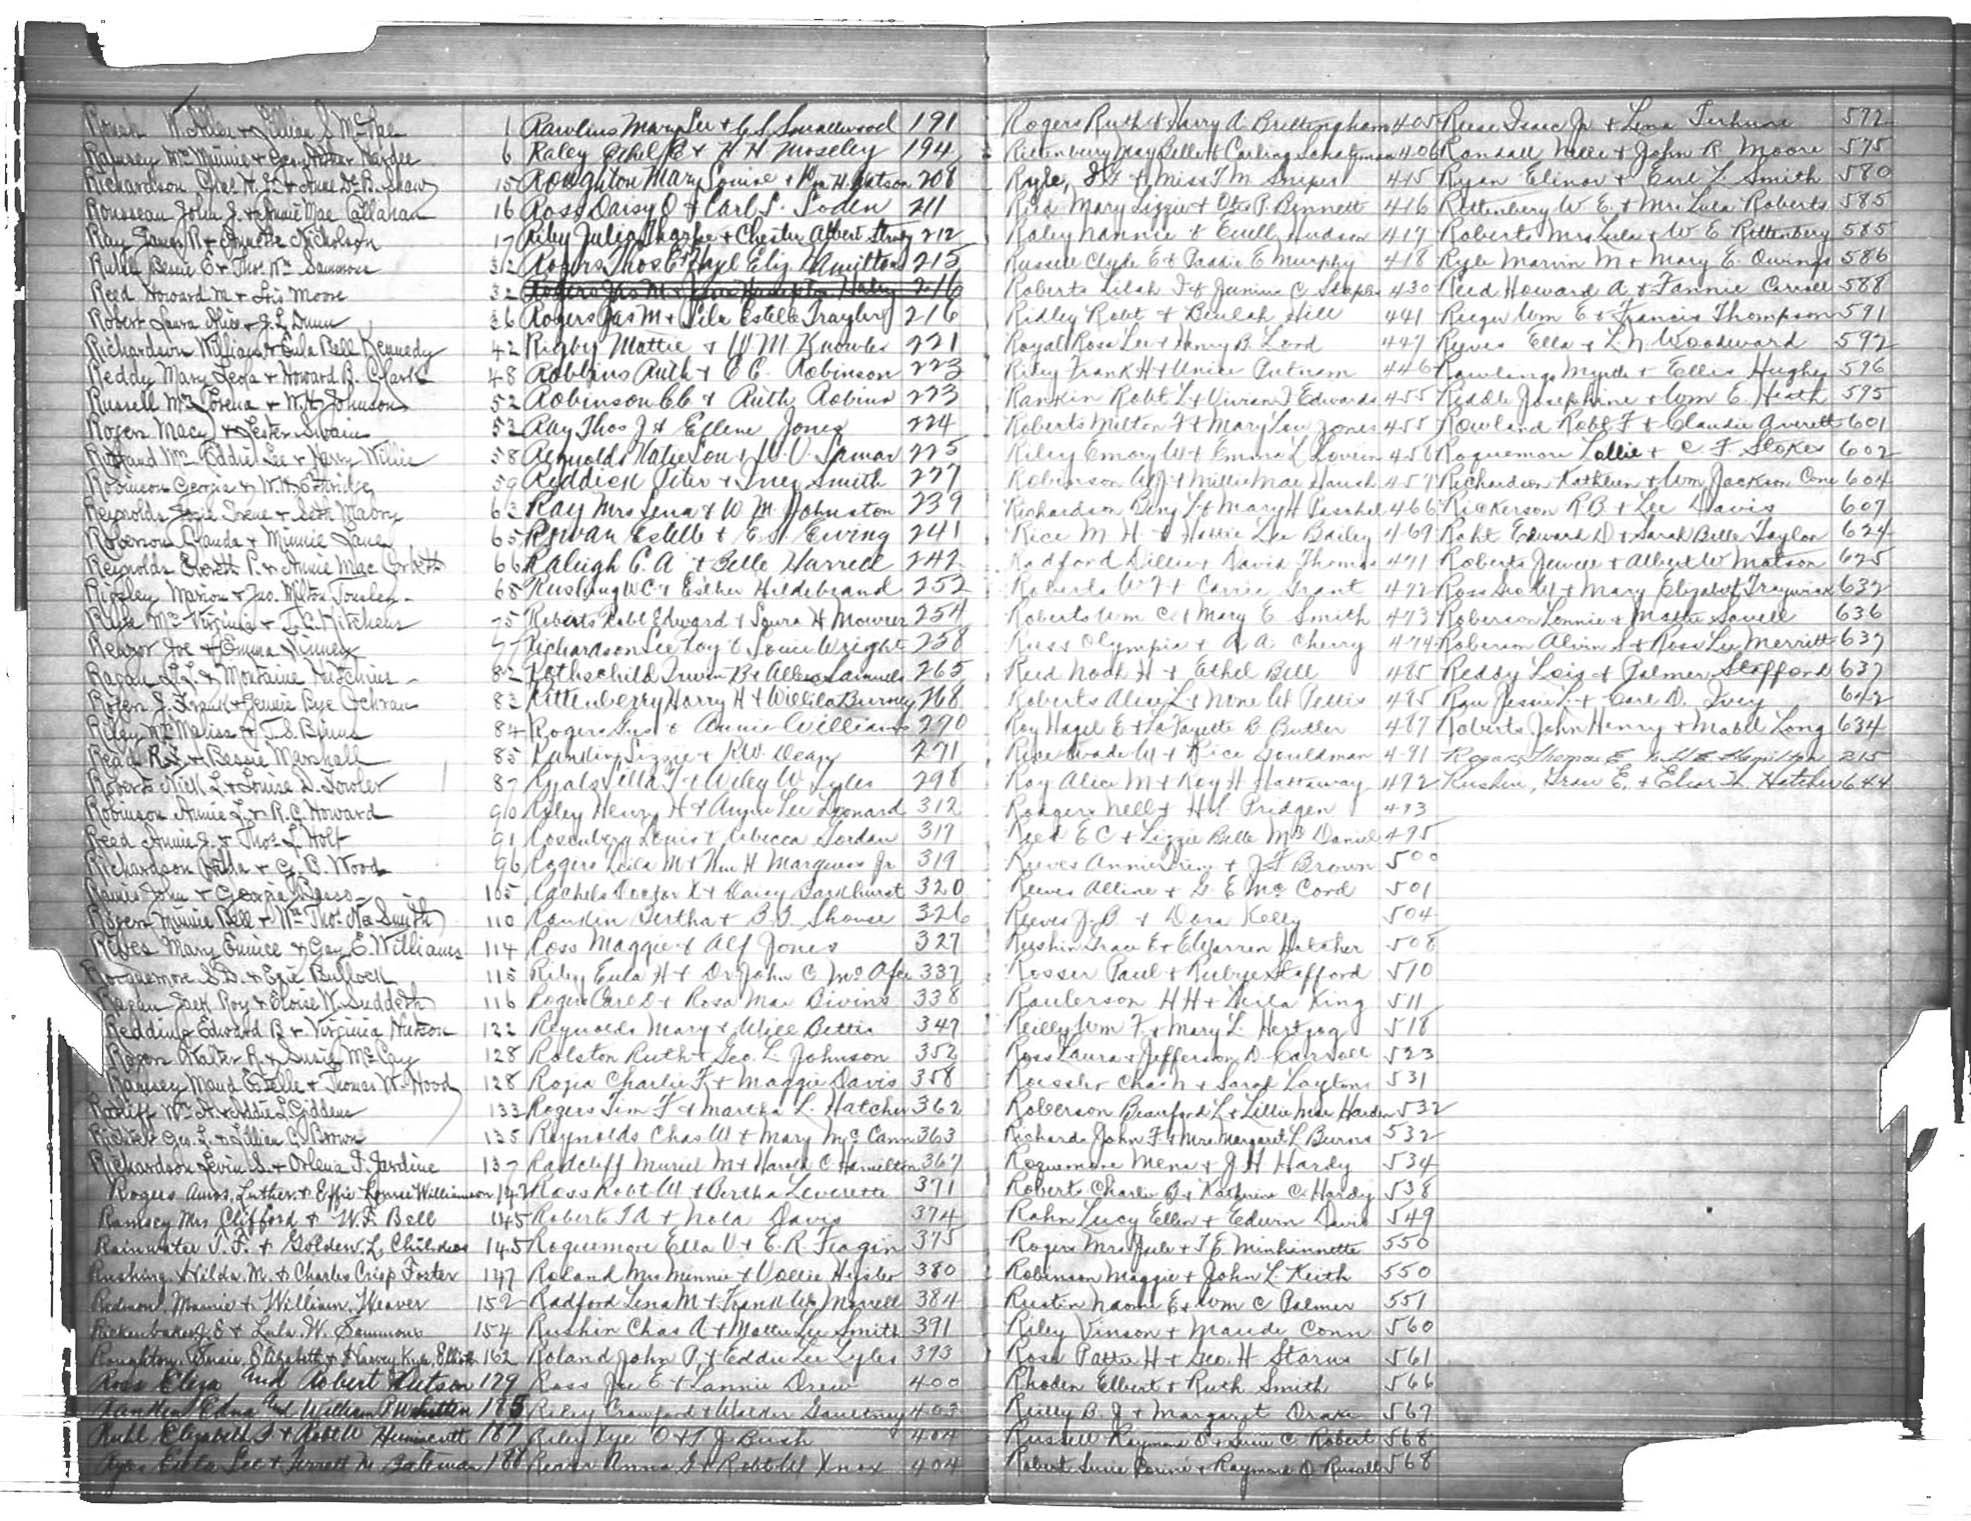 Roush W. Allen & Lillian S. McPhe 1
Ramsey Mrs Minnie & Geo. Hardee 6
Richardson Chas H. & Anne De B. Shaw 15
Rousseau John J. & Annie Mae Callahan 16
Ray James R & Annette Nicholson 17
Ruhl Bessie E & Thos. Wm Sammons 312
Reed Howard M & Iris Moore 32
Robert Laura Alice & J. L. Dunn 36
Richardson William & Eula Bell Kennedy 42
Reddy Mary Leola & Howard B. Clark 48
Russell Mrs Lorena & W. H. Johnson 52
Rogers Macy & Lester Swain 53
Mrs Eddie Lee & Willie 58
Robinson Georgia & W. H. Ethridge 59
Reynolds Josie Irene & Seth Mabry 63
Roberson Claude & Minnie Lane 65
Reynolds Everett P. & Annie Mae Corbett 66
Ripley Marion & Jas. Milton 68
Mrs Virginia & Kitchens 75
Joe & Emma 77
Ragan L. L. & Montaine Hutchins 82
Rogers J. Frank & Jennie Bye Cochran 83
Riley Mrs Melissa & J. S. Binns 84
Read R. J. & Bessie Marshall 85
Roberts Nick L. & Louise D. Fowler 87
Robinson Annie L. & R. C. Howard 90
Reed Annie J. & Thos. L. Holt 91
Richardson & C. B. Wood 96
John & Georgia 105
Rogers Minnie Bell & Wm Thos. Nor Smith 110
Reeves Mary Eunice & Guy E. Williams 114
Roquemore S. D. & Effie Bullock 115
Ragan Jack Roy & Eloise W. Suddeth 116
Redding Edward B. & Virginia Hutson 122
Rogers Walter R. & Susie McCoy 128
Ramsey Maud Estelle & Thomas W. Hood 128
Ratliff Wm A. & Addie L. Giddens 133
Geo. L. & Lillian C. Brown 135
Richardson Levin S. & Orlena F. Jardine 137
Rogers Amos Luther & Effie Lonnie Williamson 142
Ramsey Mrs Clifford & W. F. Bell 145
Rainwater J. F. & Golden L. Childres 145
Rushing Hilda M. & Charles Crisp Foster 147
Redmon Mamie & William Weaver 152
Rickenbaker J. E & Lula W. Sammons 154
Roughton Susie Elizabeth & Harvey Kye Elliott 162
Ross Eliza and Robert Hutson 179
Rankin Edna and William P Whitten 185
Ruhl Elizabeth S. & Robt W Hunnicutt 187
Eula Lee & Terrett M. Bateman 188
Rawlins Mary Lee & C. S. Smallwood 191
Raley Ethel B & H H Moseley 194
Roughton Mary Louise & Wm H. Watson 208
Ross Daisy O & Carl S. Soden 211
Riley Julia Sharpe & Chester Albert 212
Rogers Thos. E & Hazel Eliz Hamilton 215
Rogers Jas M & Hampton Haley 216
Rogers Jas M & Lila Estelle Traylor 216
Rigby Mattie & W M Knowles 221
Robbins Ruth & C C. Robinson 223
Robinson C C & Ruth Robins 223
Ray Thos J & Ellene Jones 224
Reynolds Katie Lou & W. V. Lamar 225
Reddick Peter & Smith 227
Ray Mrs Lena & W M Johnston 239
Rowan Estelle & E. S. Ewing 241
Raleigh C. A & Belle Harrell 242
Rushing W C & Esther Hildebrand 252
Roberts Robt Edward & Laura H Mowrer 254
Richardson Lee Roy & Louie Wright 258
Rothschild Irwin B & Samuels 265
Rittenberry Harry H & Willila Burney 268
Rogers Gus & Annie Williams 270
Lizzie & R W. Dean 271
Ryals Villa F & Wiley W Lyles 298
Riley Henry H & Annie Lee Leonard 312
Rosenberg Louis & Rebecca Jordan 317
Rogers Leila M & Wm H Marquess Jr 319
Rachels & Daisy Parkhurst 320
Rankin Bertha & B. B. Shouse 326
Ross Maggie & Alf Jones 327
Riley Eula H & Dr. John C McAfee 337
Rogers Carl D & Rosa Mae Bivins 338
Reynolds Mary & Will Bettis 347
Rolston Ruth & Geo. L Johnson 352
Charlie F & Maggie Davis 358
Rogers Jim F & Martha L. Hatcher 362
Reynolds Chas W & Mary McCann 363
Radcliff Muriel M & Harold C Hamilton 367
Ross Robt W & Bertha Leverette 371
Roberts T A & Nola Davis 374
Roquemore Ella V & E. R. Feagin 375
Roland Mrs Minnie & Vollie Hysler 380
Radford Lena M & Frank W Merrell 384
Rushin Chas A & Mattie Lee Smith 391
Roland John A. & Eddie Lee Lyles 393
Ross Joe E & Lannie Drew 400
Riley Crawford & Walder Gaultney 403
Riley Kye O & T J Bush 404
Anna G & Robt W Knox 404
Rogers Ruth & Harry A. Brittingham 405
Rittenberry May Belle & Carling Schatzman 406
Ryle, J F & Miss T M Snipes 415
Reid Mary Lizzie & Otis P. Bennett 416
Raley Nannie & Euell Hudson 417
Russell Clyde E & Passie E Murphy 418
Roberts Lilah F & Junius C Staples 430
Ridley Robt & Beulah Hill 441
Royal Rosa Lee & Henry B. Lord 447
Riley Frank H & Unice Putnam 446
Rankin Robt L & Vivian F Edwards 455
Roberts Milton F & Mary Lou Jones 455
Riley Emory W & Emma L Lovein 456
Robinson A J & Millie Mae Harsh 457
Richardson Benj L & Mary H Paschel 466
Rice M H & Hattie Lee Bailey 469
Radford Lillie & David Thomas 471
Roberts W F & Carrie Grant 472
Roberts Wm C & Mary E Smith 473
Russ Olympia & A A Cherry 474
Reid Noah H & Ethel Bell 485
Roberts Alice L & None W Pettis 485
Roy Hazel E & LaFayette B Butler 487
Rice Wade W & Rice Gouldman 491
Roy Alice M & Roy H Hattaway 492
Rodgers Nell & H S Pridgen 493
Reed E C & Lizzie Belle McDaniel 495
Reeves Annie & J S Brown 500
Reeves Alline & G E McCord 501
Reeves J. B & Dora Kelly 504
Rushin Grace E & E Warren Hatcher 508
Rosser Paul & Rubye Stafford 510
Raulerson H H & Leila King 511
Reilly Wm F & Mary L. Hertzog 518
Ross Laura & Jefferson D Carswell 523
Roessler Chas N & Sarah Laytons 531
Roberson Beauford L & Lillie Mae Harden 532
Richards John F & Mrs Margaret L Burns 532
Roquemore Mena & J H Hardy 534
Roberts Charlie B & Katherine C Hardy 538
Rahn Lucy Ellen & Edwin Davis 549
Rogers Mrs Jule & T E Minhinnette 550
Robinson Maggie & John L. Keith 550
Rustin Naomi E & Wm C Palmer 551
Riley Vinson & Maude Conn 560
Ross Pattie H & Geo. H Starns 561
Rhoden Elbert & Ruth Smith 566
Reilly B. J & Margaret Drake 567
Russell Raymond O & Susie C Robert 568
Robert Susie Corine & Raymond O Russell 568
Reese Isaac Jr & Lena Terhune 572
Randall Nelle & John R Moore 575
Ryan Elinor & Earl L. Smith 580
Rittenberry W E. & Mrs Lula Roberts 585
Roberts Mrs Lula & W E Rittenberry 585
Ryle Marvin M & Mary E. Owings 586
Reed Howard A & Fannie 588
Reeger Wm E & Francis Thompson 591
Reeves Ella & L. N. Woodward 592
Rawlings Myrtle & Ellis Hughes 596
Riddle Josephine & Wm E. Heath 595
Rowland Robt F & Claudie Averett 601
Roquemore Lollie & C. F Stokes 602
Richardson Kathleen & Wm Jackson Cone 604
Rickerson R B & Lee Davis 607
Roht Edward D & Sarah Belle Taylor 624
Roberts Jewell & Albert W Matson 625
Ross Geo W & Mary Elizabeth Traywick 632
Roberson Lonnie & Mattie Sovell 636
Roberson Alvin S & Rosa Lee Merritt 637
Reddy Lois & Palmer Stafford 637
Rau Jessie L & Carl D. Ivey 642
Roberts John Henry & Mabel Long 634
Rogers Thomas E to H E Hamilton 215
Rushin, Grace E, & Eliar W Hatcher 644